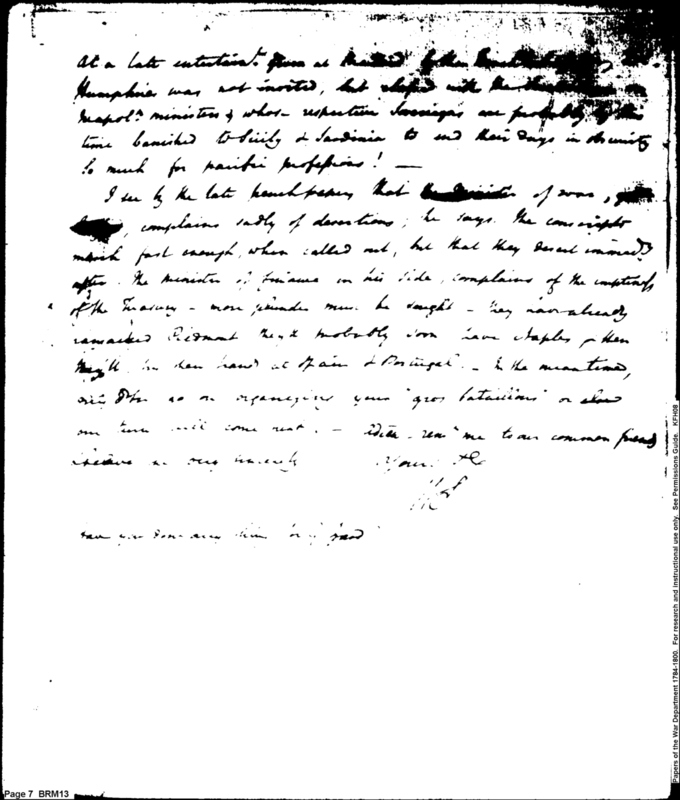 At a late entertaint. given at Madrid by the French
Humphries was not invited, but
Neapoln. ministers & whose respective Sovereigns are probably by this
time banished to Sicily & Sardinia to end their days in obscurity
So much for pacific professions! —
I see by the late french papers that the Minister of war,
complains sadly of desertions; he says. The conscripts
march fast enough, when called out, but that they desert immedy.
after. The minister of finance on his side, complains of the emptiness
of the Treasury - more plunder must be sought - they have already
ransacked Piedmont they'll probably soon have Naples & then
they'll try their hand at Spain & Portugal. - In the meantime,
go on organizing your "gros bataillons" or else
our turn will come next. - Adieu - remr. me to our common friends
& believe me very sincerely Yours &c
have you done any thing
Page 7 BRM13
Papers of the War Department 1784-1800. For research and instructional use only. See Permissions Guide. KFH08